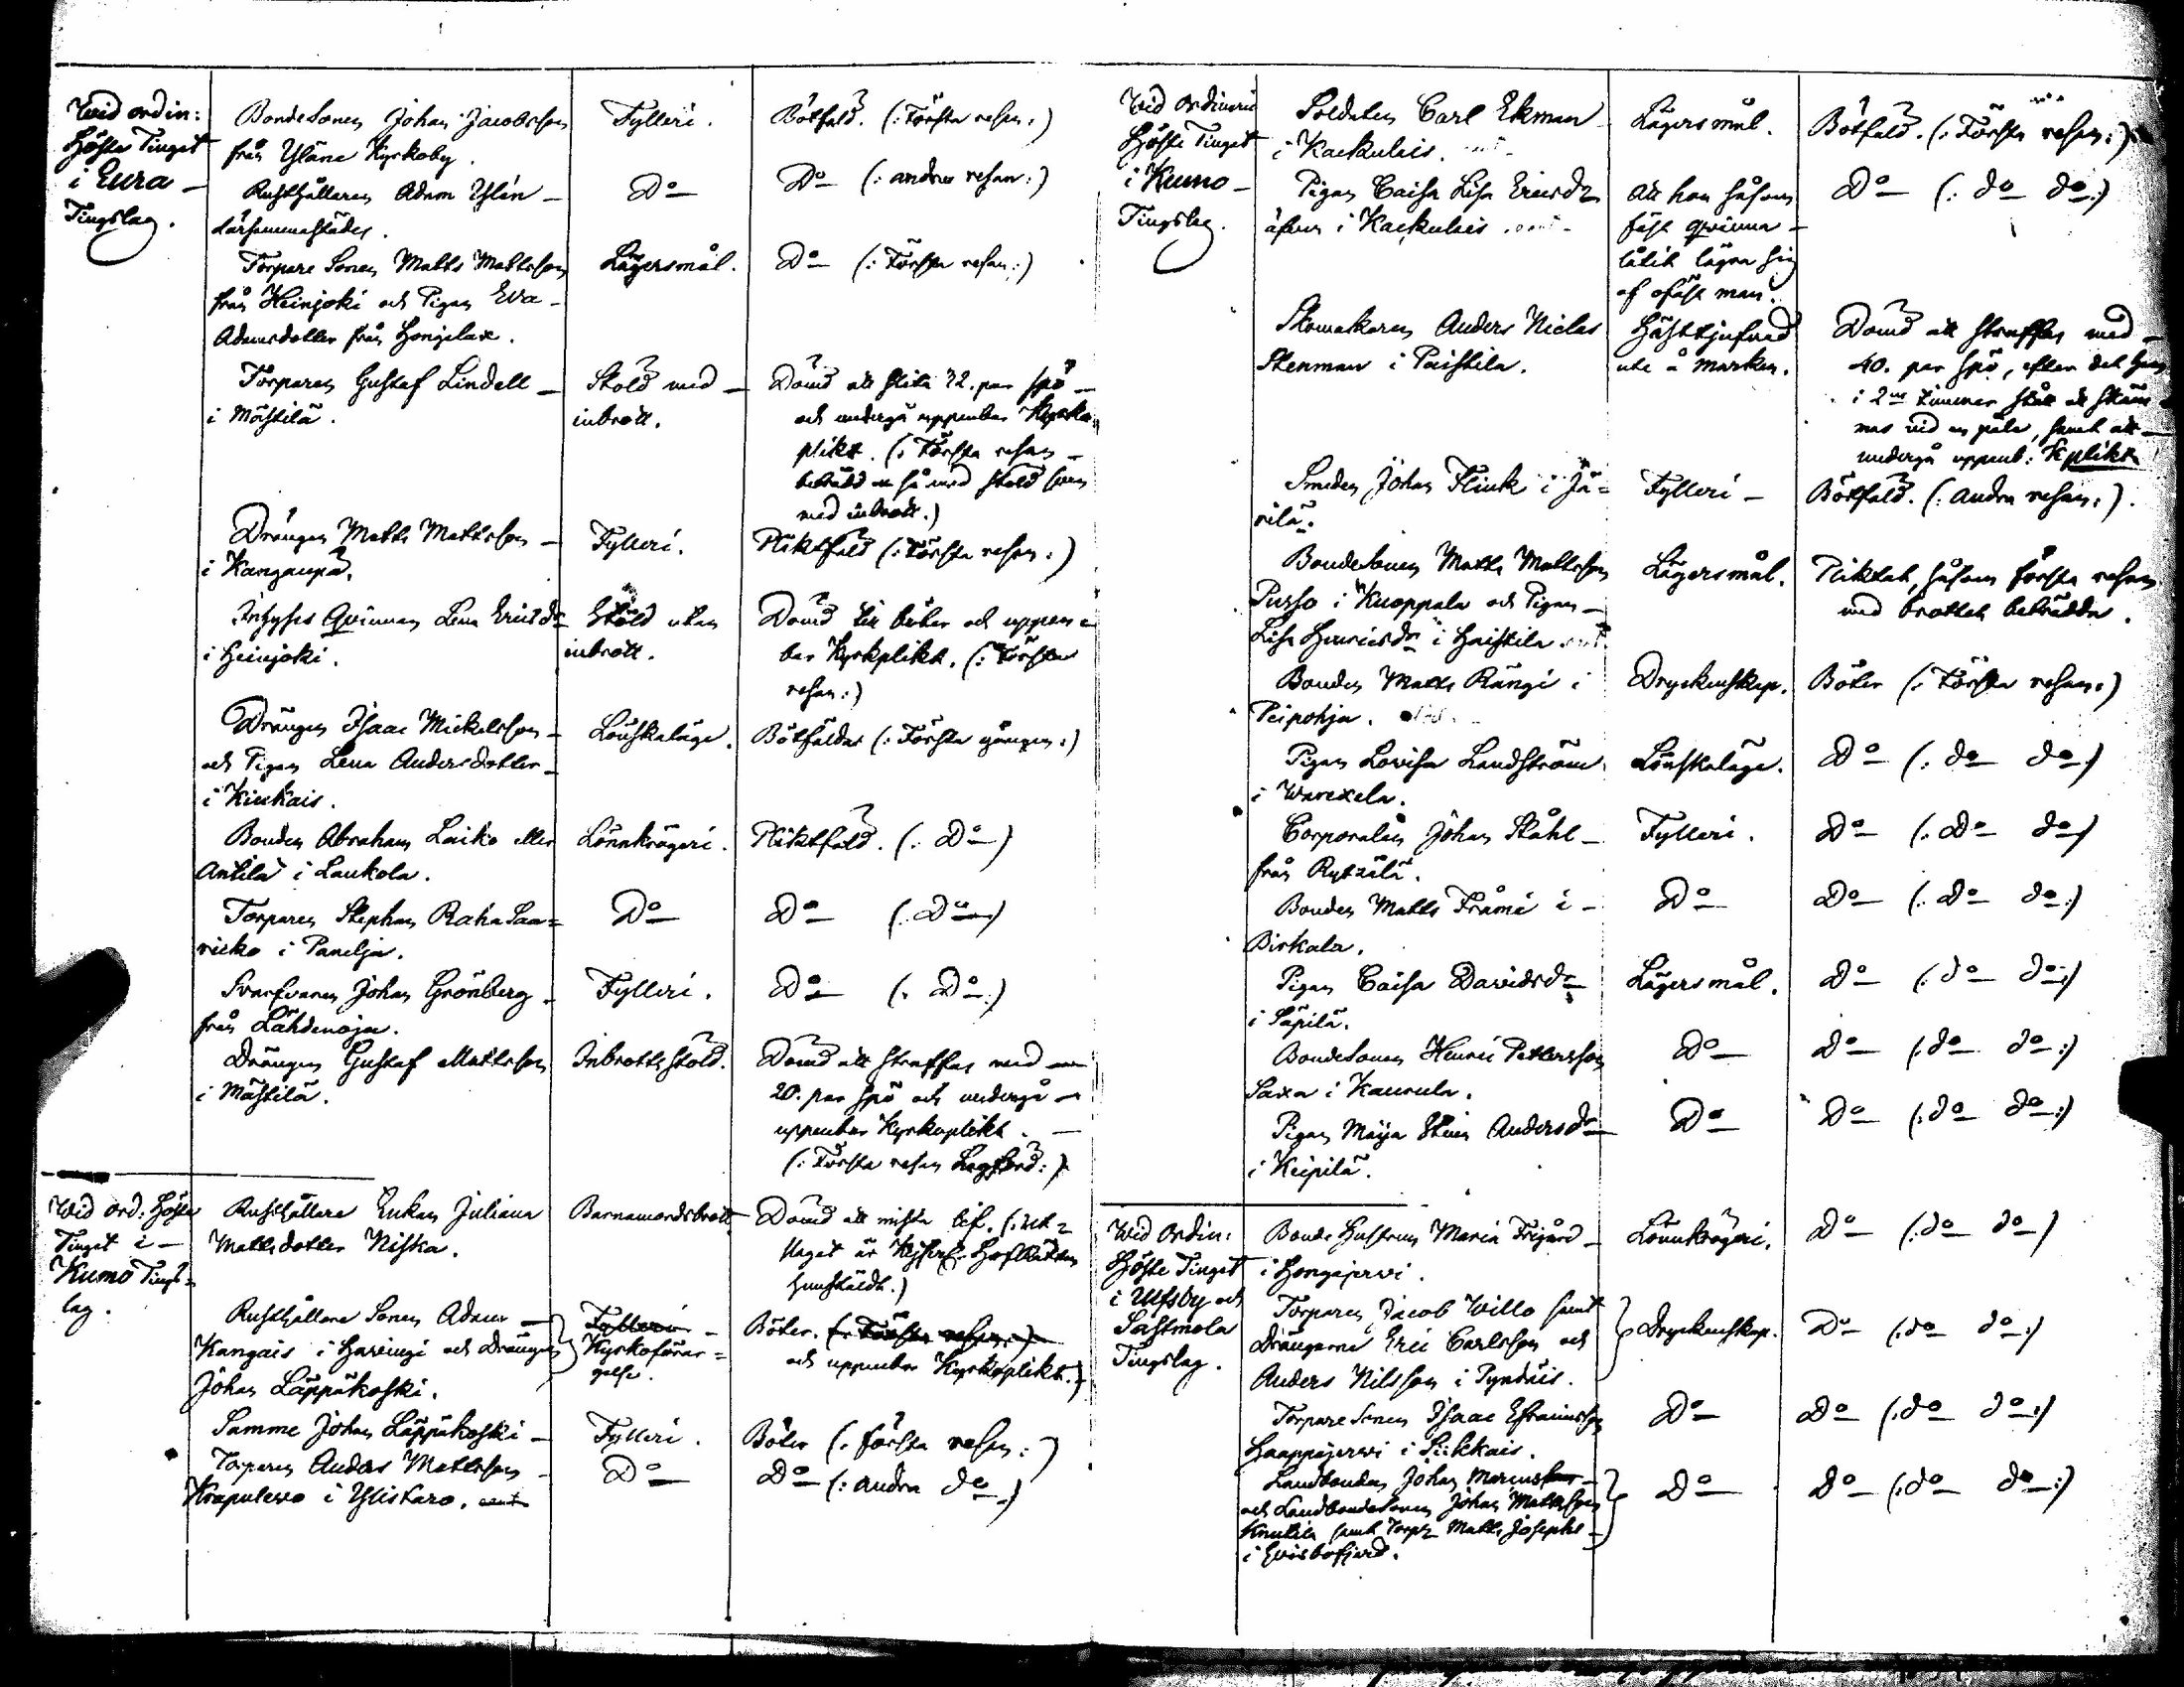 Wid ordin:
Höste Tinget
i Eura
Tingslag.
Bonde Sonen Johan Jacobsson
från Yläne Kyrkoby.
Fylleri.
Bötfäld. (: Första resan :)
Rusthållaren Adam Ylén
därsammastädes.
Do
Do (: andra resan :)
Torpare Sonen Matts Mattsson
från Heinjoki och Pigan Eva
Adamsdotter från Honjelax.
Lägersmål.
Do (: Första resan :)
Torparen Gustaf Lindell
i Mästilä.
Stöld med
inbrott.
Dömd att slita 32. par spö
och undergå uppenbar Kyrko
plikt. (: Första resan
beträdd så med stöld som
med inbrott.)
Drängen Matts Mattsson
i Kangaupä.
Fylleri.
Pliktfäld (: Första resan :)
Inhyses Qvinnan Lena Ericsdr
i Heinjoki.
Stöld utan
inbrott.
Dömd til böter och uppen=
bar Kyrkplikt. (: Första
resan :)
Drängen Isaac Mickelsson
och Pigan Lena Andersdotter
i Kiukais.
Lönskaläge.
Bötfäldas (: Första gången :)
Bonden Abraham Laiko eller
Antila i Laukola.
Lönnkrögeri.
Pliktfäld. (: Do)
Torparen Stephan Raha Saa=
ricko i Panelja.
Do
Do (: Do :)
Svarfvaren Johan Grönberg
från Lähdenoja.
Fylleri.
Do (: Do :)
Drängen Gustaf Mattsson
i Mästilä.
Inbrotts stöld.
Dömd att straffas med
20. par spö och undergå
uppenbar Kyrkoplikt.
(: Första resan Lagförd :)
Wid ord: Höste
Tinget i
Kumo Tings=
lag.
Rusthållare Enkan Juliana
Mattsdotter Niska.
Barnamordsbrott
Dömd att mista lif. (: Ut=
slaget är Kejserl. HofRätten
hemstäldt.)
Rusthållare Sonen Adam
Kangais i Harvingi och Drängen
Johan Läppäkoski.
Fylleri
Kyrkoförar=
gelse.
Böter. (: Första resan :)
och uppenbar Kyrkoplikt.)
Samme Johan Läppäkoski
Fylleri.
Böter (: första resan :)
Torparen Anders Mattsson
Krapulevo i Yliskaro.
Do
Do (: andra do)
Wid ordinarie
Höste Tinget
i Kumo
Tingslag.
Soldaten Carl Ekman
i Kaekulais.
Lägersmål.
Bötfäld. (: Första resan :)
Pigan Caisa Lisa Ericsdr
äfven i Kaekulais
Att hon såsom
fäst qvinna
låtit lägra sig
af ofäst man.
Do (: do do :)
Skomakaren Anders Niclas
Stenman i Paistila.
Hästtjufnad
ute å marken.
Dömd att straffas med
40. par spö, efter det han
i 2ne timmar stått att skäm
mas vid en påle, samt att
undergå uppenb: Kplikt
Smeden Johan Flink i Jä=
rilä.
Fylleri
Bötfäld. (: Andra resan :).
Bondesonen Matts Mattsson
Pusso i Kuoppala och Pigan
Lisa Henricsdr i Haistila
Lägersmål.
Pliktat, såsom första resan
med brottet beträdda.
Bonden Matts Rängi i
Peipohja.
Dryckenskap.
Böter (: Första resan :)
Pigan Lovisa Landström
i Warexela.
Lönskaläge.
Do (: do do :)
Corporalen Johan Ståhl
från Rytzälä.
Fylleri.
Do (: Do do :)
Bonden Matts Främi i
Birkala.
Do
Do (: Do do :)
Pigan Caisa Davidsdr
i Säpilä.
Lägersmål.
Do (: do do :)
BondeSonen Henric Pettersson
Saxa i Kaurula.
Do
Do (: do do :)
Pigan Maja Stina Andersdr
i Keipilä.
Do
Do (: do do :)
Wid Ordin:
Höste Tinget
i Ulfsby och
Sastmola
Tingslag.
Bonde Hustrun Maria Frigård
i Hongajerwi.
Lönnkrögeri.
Do (: do do)
Torparen Jacob Willo samt
Drängarne Eric Carlsson och
Anders Nilsson i Tyndäis.
Dryckenskap.
Do (: do do :)
Torpare Sonen Isaac Efraimsson
Haappajerwi i Siikkais.
Do
Do (: do do :)
Landbonden Johan Marcusson
och LandbondeSonen Johan Mattsson
Knutila samt Torpr Matts Josephs
i Hvisbofjerd.
Do
Do (: do do :)